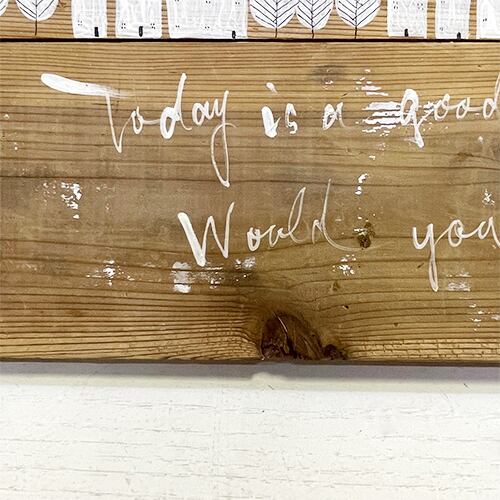 Today is a good
Would you